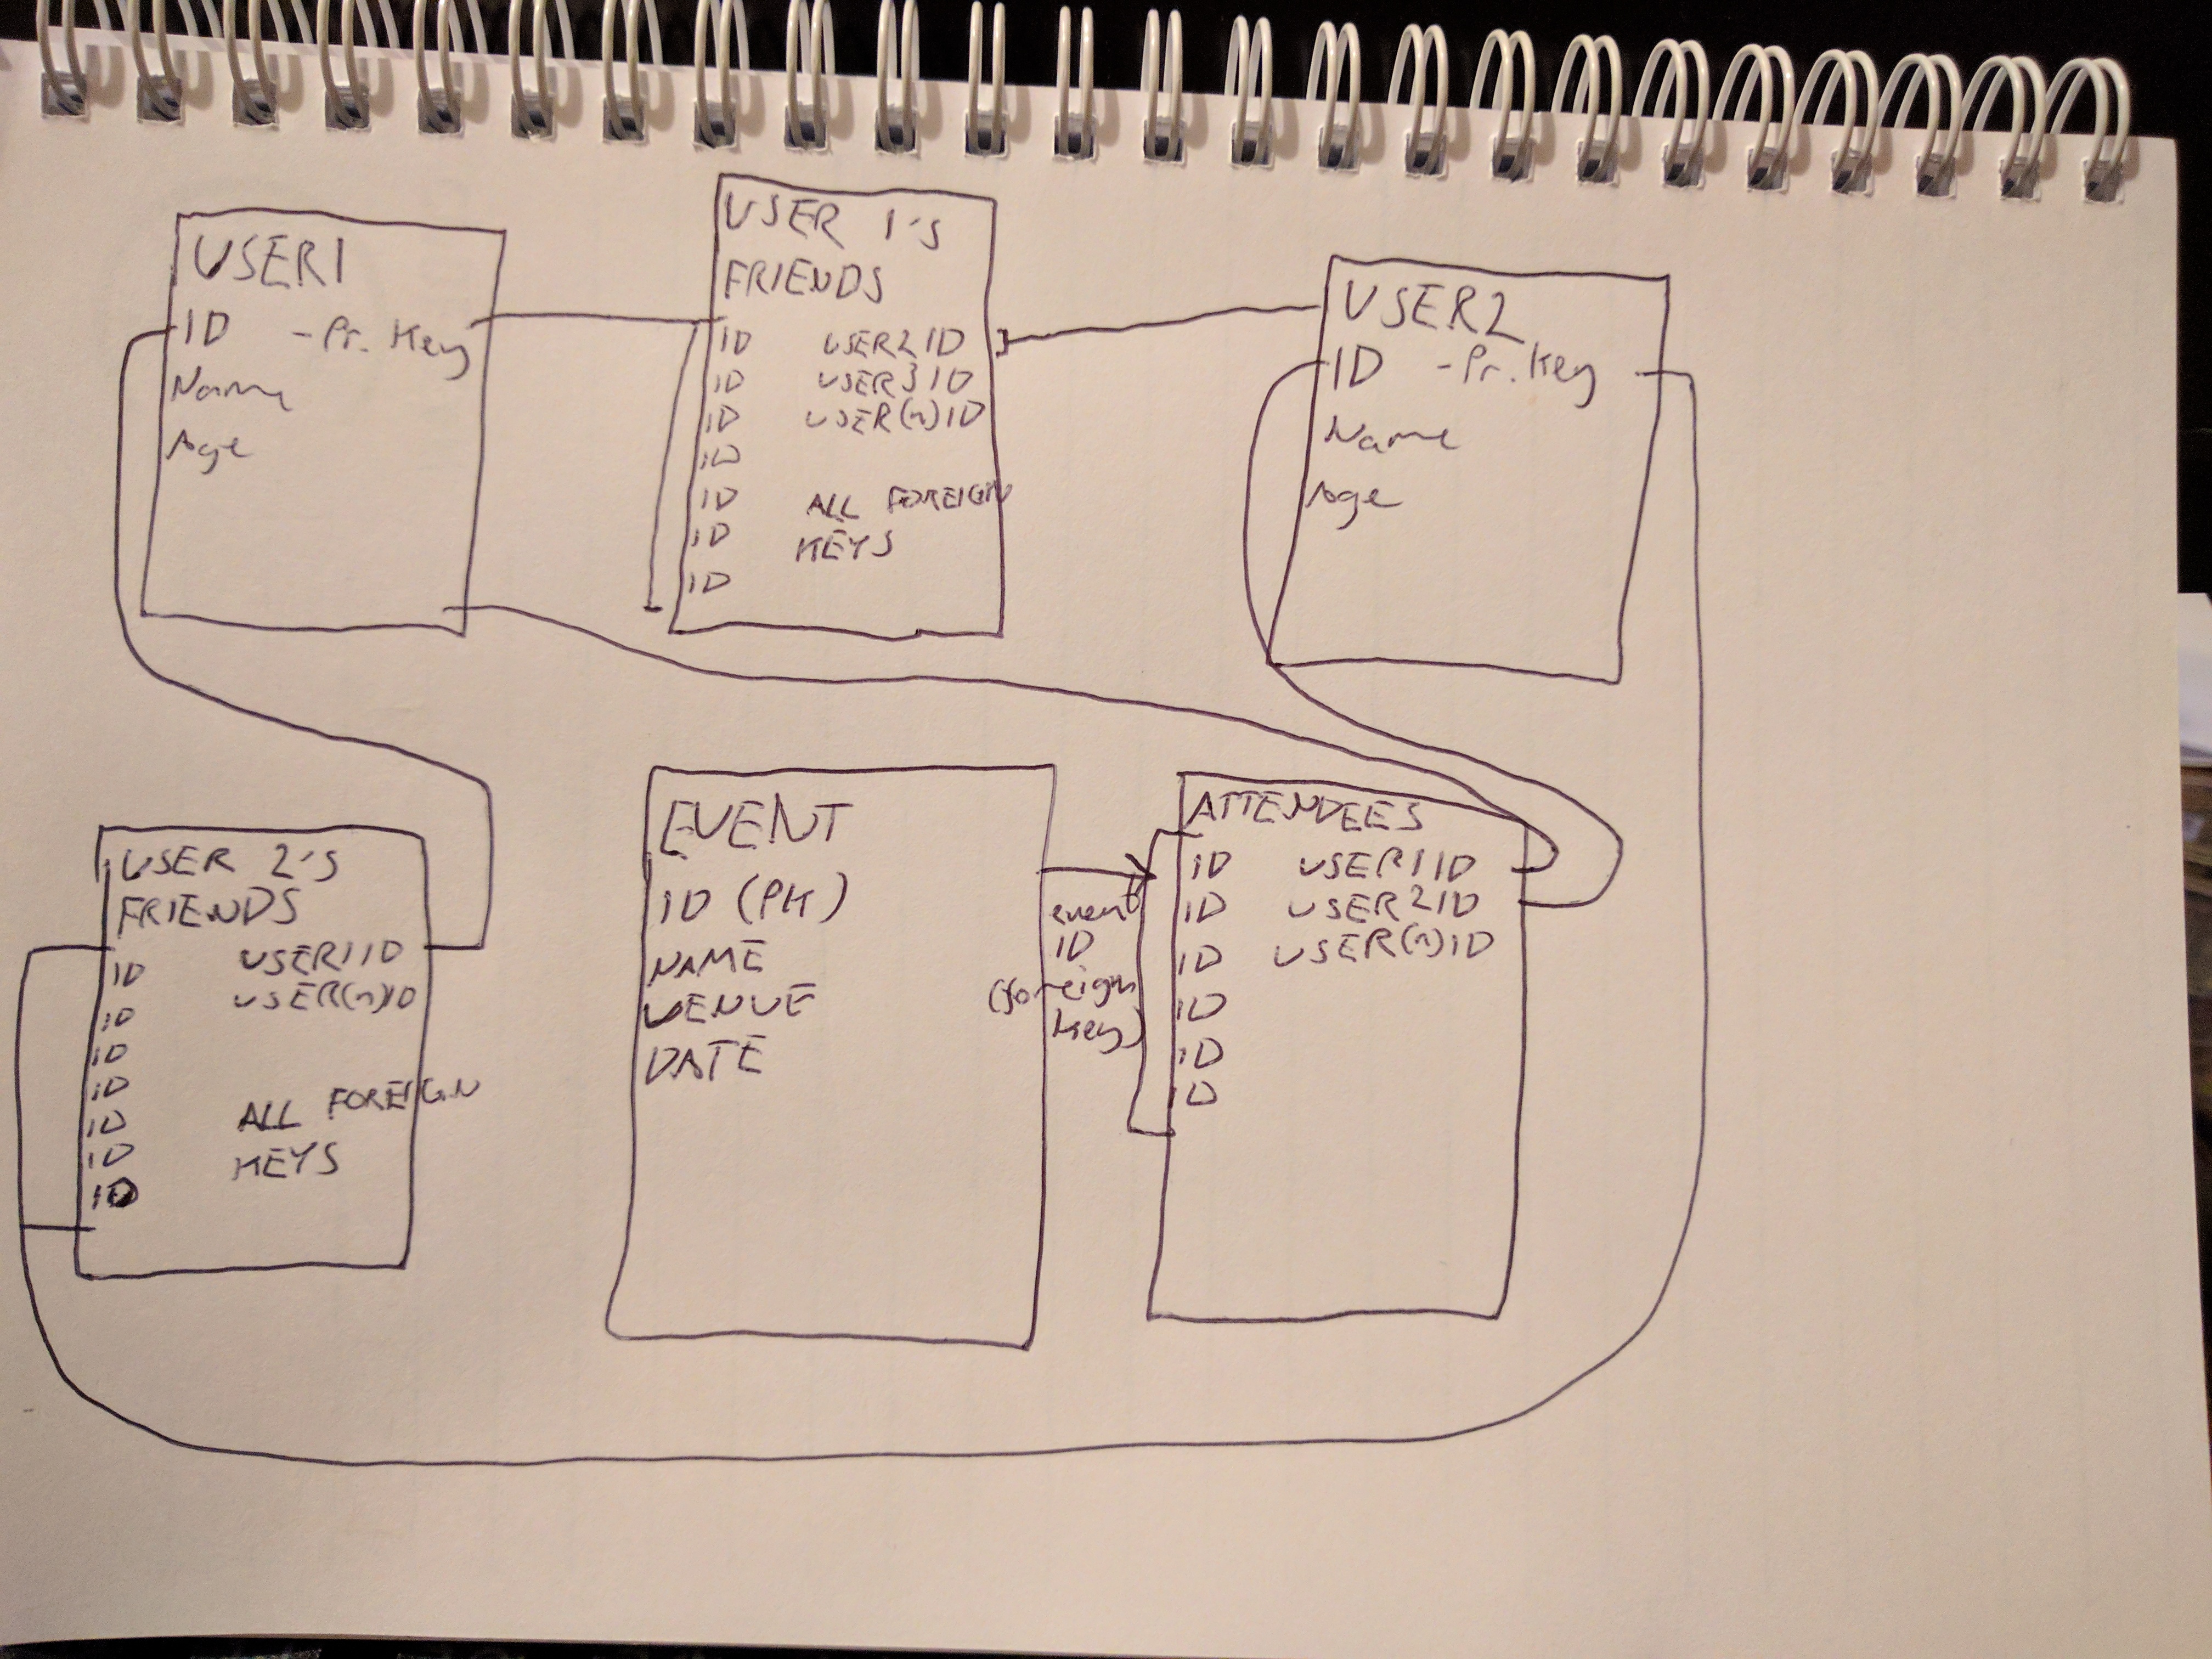 USER1
ID - Pr. Key
Name
Age
USER 1's
FRIENDS
ID USER2 ID
ID USER3 ID
ID USER(n)ID
ID
ID ALL FOREIGN
ID KEYS
ID
USER2
ID - Pr. Key
Name
Age
USER 2's
FRIENDS
USER1 ID
ID USER(n)ID
ID
ID
ID ALL FOREIGN
ID KEYS
ID
ID
EVENT
ID (PK)
NAME
VENUE
DATE
event
ID
(foreign
key)
ATTENDEES
ID USER1 ID
ID USER2ID
ID USER(n)ID
ID
ID
ID